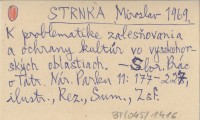 STRNKA Miroslav 1969.
K problematike zalesňovania
a ochrany kultúr vo vysokohor-
ských oblastiach. - Sbor. Prác
o Tatr. Nár. Parku 11: 177-227,
ilustr., Rez., Sum., Zsf.
BY(045) 1416